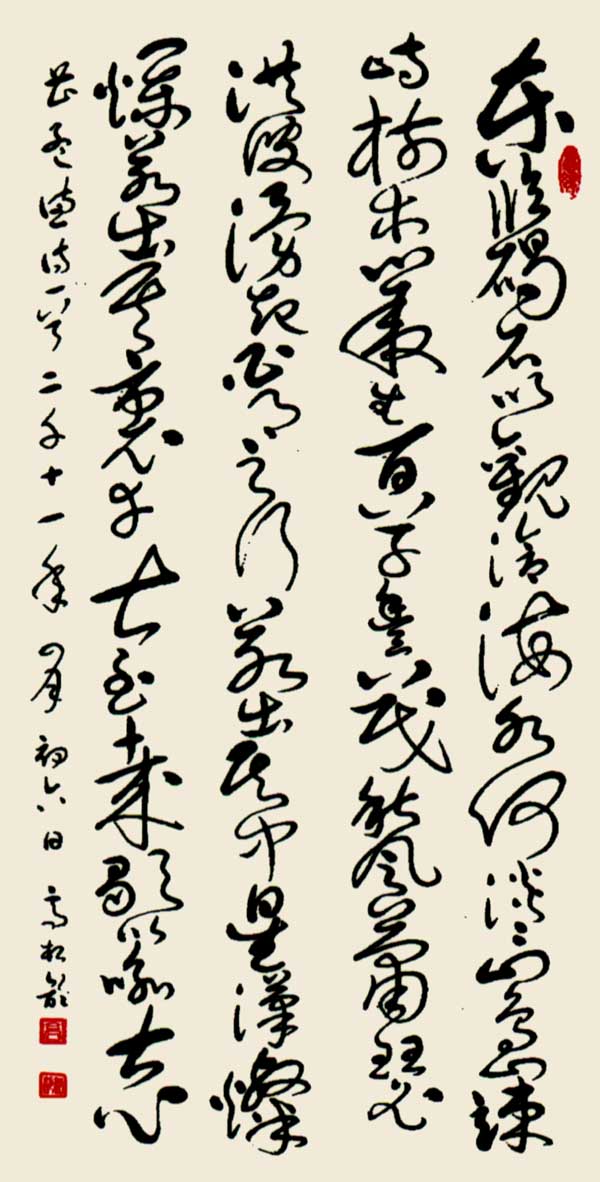 東臨碣石以觀滄海水何淡淡山島竦
峙樹木叢生百草豐茂秋風蕭瑟
洪波湧起日月之行若出其中星漢燦
爛若出其裏幸甚至哉歌以詠志
曹孟德詩一首二千十一年四月初六日 高松